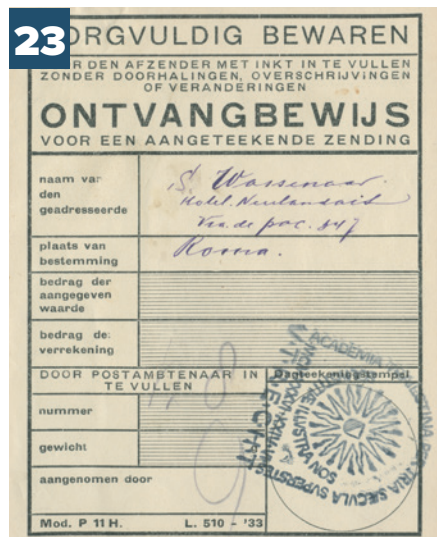 23
ORGVULDIG BEWAREN
R DEN AFZENDER MET INKT IN TE VULLEN
ZONDER DOORHALINGEN, OVERSCHRIJVINGEN
OF VERANDERINGEN
ONTVANGBEWIJS
VOOR EEN AANGETEEKENDE ZENDING
naam van
den
geadresseerde
S. Wassenaar.
Hotel
847
plaats van
bestemming
Roma.
bedrag der
aangegeven
waarde
bedrag de
verrekening
DOOR POSTAMBTENAAR IN
TE VULLEN
Dagteekeningstempel
nummer
gewicht
aangenomen door
ACADEMIA
SOL IUSTITIAE ILLUSTRA NOS
UTRECHT
Mod. P 11 H. L. 510 - '33